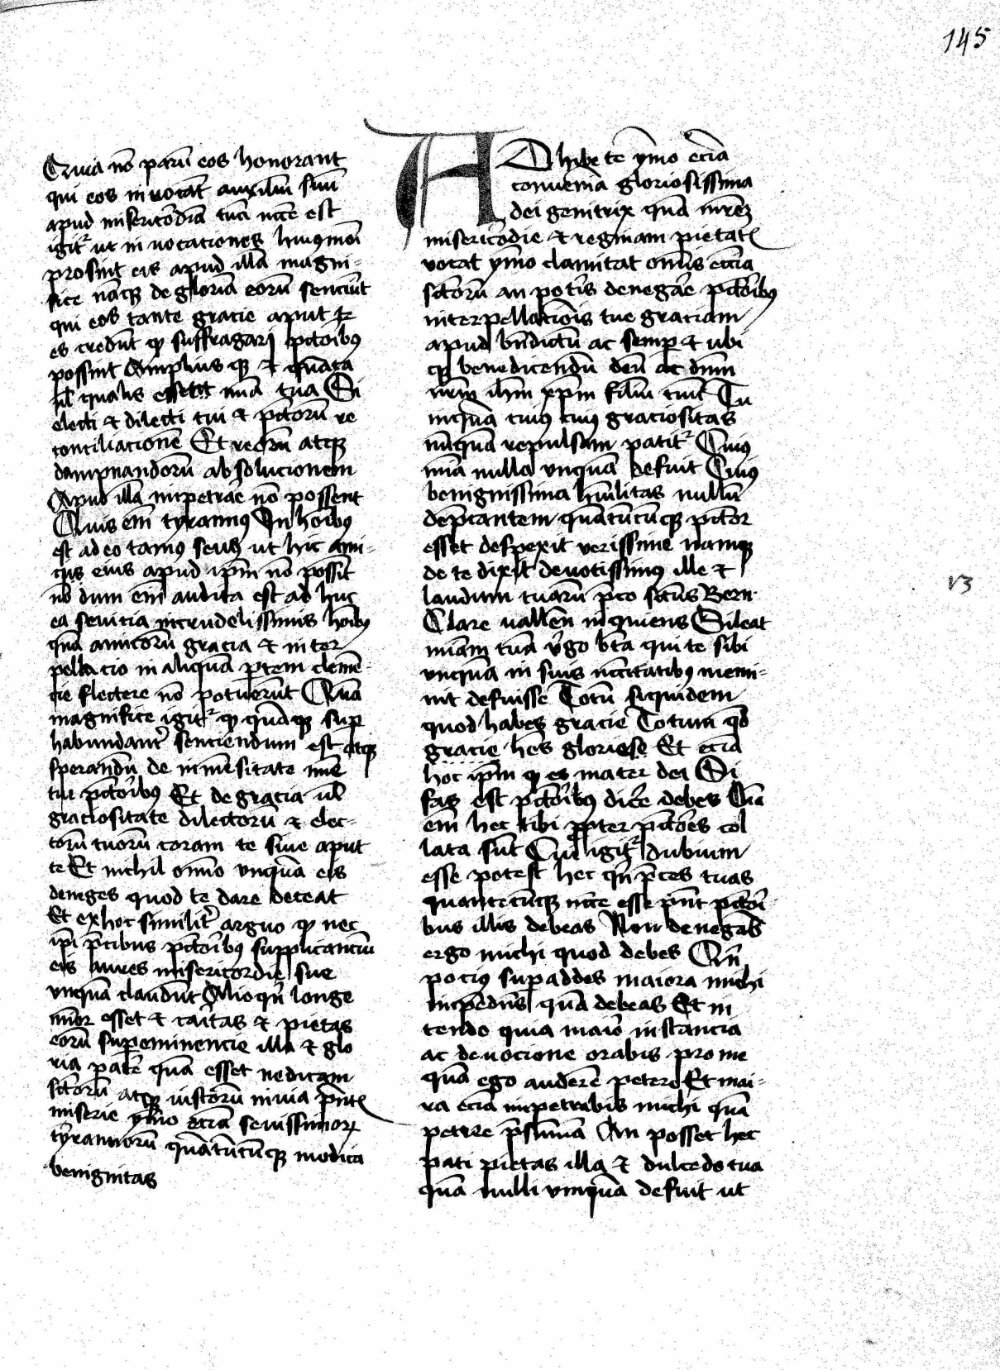 145
Quia nō parū eos honorant
qui eos invocāt auxiliū suū
apud misericordiā tuā nc̄ce est
igit᷑ ut in vocationes huiꝰmōi
prosint eis apud illā magni-
fice nāqꝫ de gloriā eorū senciūt
qui eos tante gracie aput
es credūt ꝙ suffragari pctōribꝰ
possint Amplius qꝫ ⁊ quāta
ul̄ qualis esset mīa tua Si
electi ⁊ dilecti tui ⁊ pctōrū re
conciliacionē Et reorū atqꝫ
dampnandorū absolucionem
Apud illā inpetrāe nō possent
Quis em̄ tyrannꝰ In hoībꝰ
est ad eo tamꝰ seuꝰ ut hic ami-
cus eius apud ip̄m nō possit
nō dum em̄ audita est ad huc
ea sevitia in crudelissimis hōibꝰ
quā amicorū gracia ⁊ inter
pellacio in aliquā ꝑtem clemē-
cie flectere nō potuerūt Quā
magnifice igit᷑ ꝙ quāqꝫ suꝑ
habundāt᷑ senciendum est atqꝫ
sperandū de inmēsitate mīe
tue pctōribꝰ Et de gracia ul̄
graciositate dilectorū ⁊ elec-
torū tuorū coram te sive aput
te Et nichil om̄o vnquā eis
deneges quod te dare deceat
Et ex hoc similit᷑ arguo ꝙ nec
ip̄i p̄cibus pctōribꝰ supplicanciū
eis aures misericordie sue
vnquā claudūt Alioqn̄ longe
minor esset ⁊ caritas ⁊ pietas
eorū suꝑeminencie illa ⁊ glo
ria pat᷑e quā esset nedicam
sctōrū atqꝫ iustorū in via
miserie ymo eciā sevissimoꝝ
tyrannorū quātūcūqꝫ modica
benignitas
Adhibe te ymo eciā
conueniā gloriosissima
dei genitrix quā mr̄eꝫ
misericordie ⁊ reginam pietatꝭ
vocat ymo clamitat om̄is eccīa
sctōrū an potis denegāe pctōribꝰ
interpellacionis tue graciam
apud bn̄dictū ac semꝑ ⁊ ubi
qꝫ benedicendū deū ac dn̄m
nr̄m ihm̄ xp̄m filiū tuū Tu
inquā cuiꝰ cuiꝰ graciositas
nūquā repulsam patit᷑ Cuiꝰ
mīa nulla vnquā defuit Cuiꝰ
benignissima hūilitas nullū
dep̄cantem quātūcūqꝫ pctōr
esset despexit verissime namqꝫ
de te dixit devotissimꝰ ille ⁊
laudum tuarū p̄co sctūs Bern
Clare vallen̄ inquiens Sileat
mīam tuā v̄go bt̄a qui te sibi
vnquā in suis nc̄citatibꝰ memi-
nit defuisse Totū siquidem
quod habes gracie Totum qd̄
gracie hēs gloriose Et eciā
hoc ip̄m ꝙ es mater dei Si
fas est pctōribꝰ dic̄e debes Quia
em̄ hec tibi ꝓpter pctōes col
lata sūt Cui igit᷑ dubium
esse potest hec qn̄ p̄ces tuas
quantecūqꝫ nc̄ce esse p̄nt pctōri
bus illis debeas Non denegab̄
ergo michi quod debes Qn̄
pociꝰ suꝑaddes maiora michi
inpēdēs quā debeas Et in
tendo quia maiōi instancia
ac deuocione orabis pro me
quā ego auderē petere Et mai-
ra eciā inpetrabis michi quā
petere p̄sumā An posset hec
pati pietas illa ⁊ dulcedo tua
quā nulli vnquā defuit ut
v3